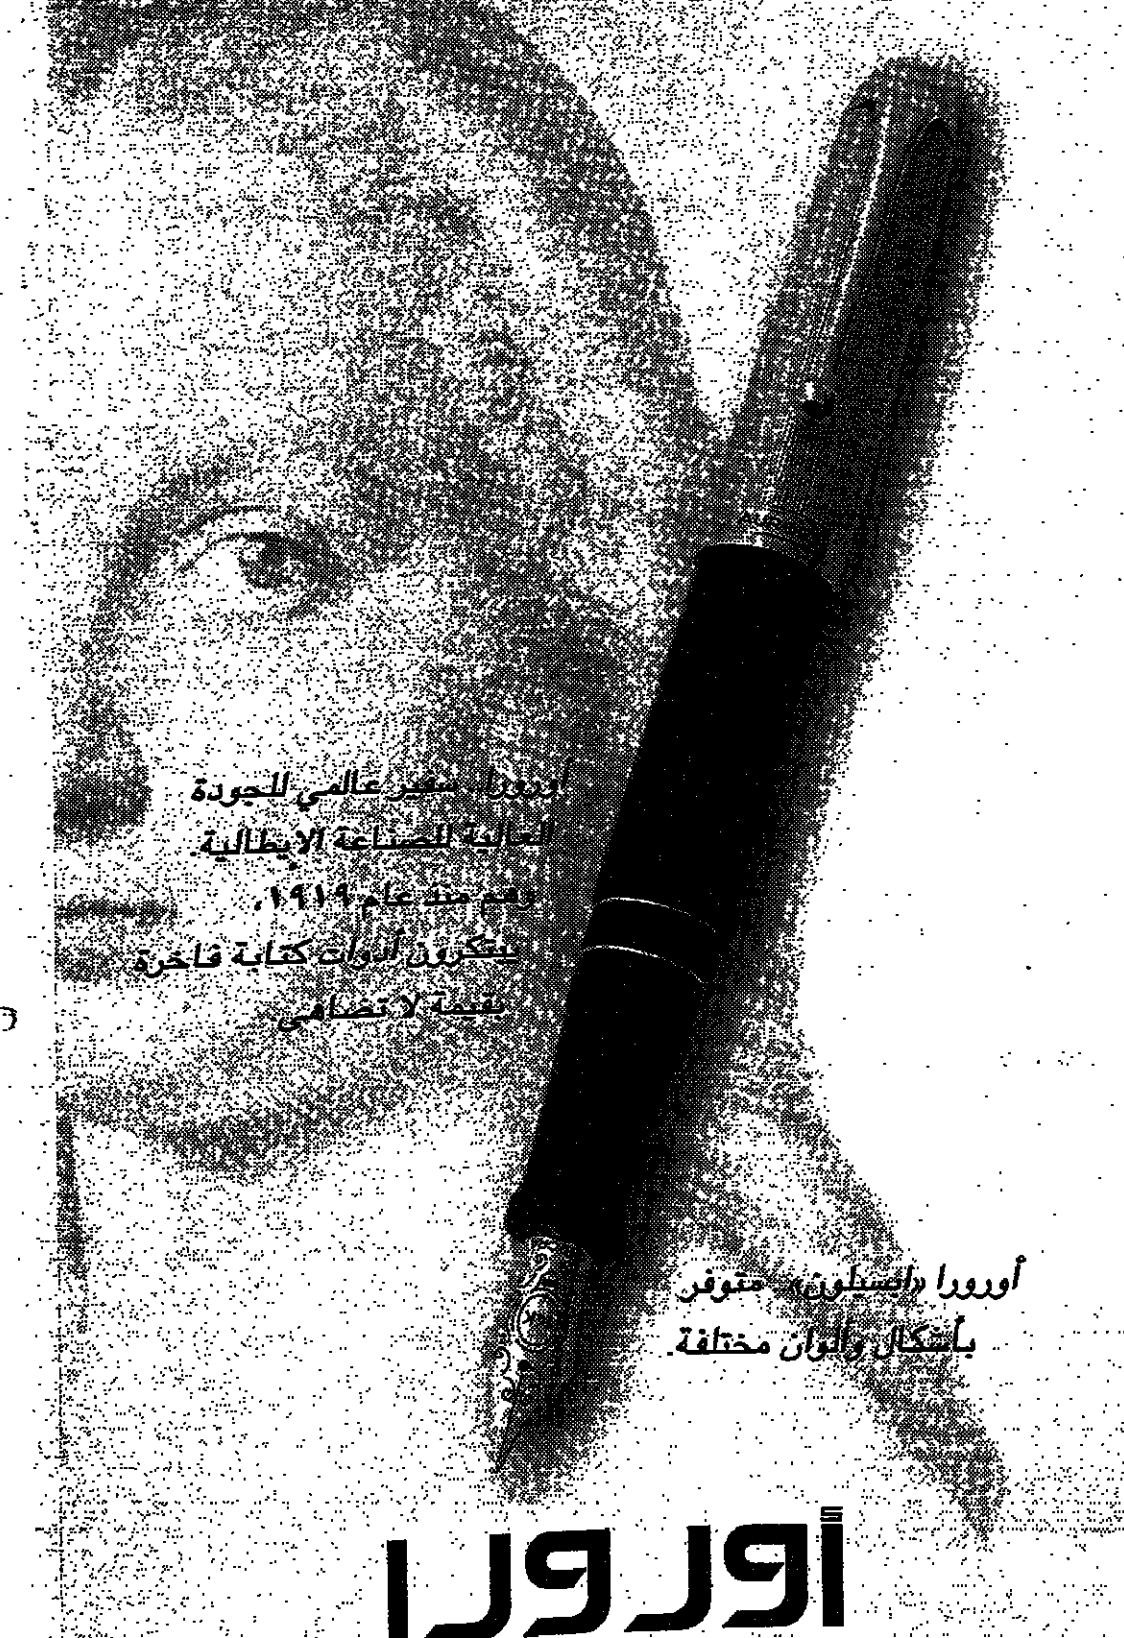 أورورا.. سفير عالمي للجودة
العالية للصناعة الايطالية.
وهم منذ عام ١٩١٩،
يبتكرون أدوات كتابة فاخرة
بقيمة لا تضاهى.
أورورا «ابسيلون» متوفر
بأشكال وألوان مختلفة.
أورورا